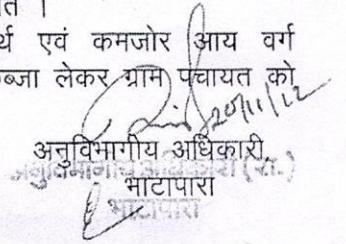 त ।
र्थ एवं कमजोर आय वर्ग
ब्जा लेकर ग्राम पंचायत को
20/11/12
अनुविभागीय अधिकारी,
अनुविभागीय अधिकारी (रा.)
भाटापारा
भाटापारा